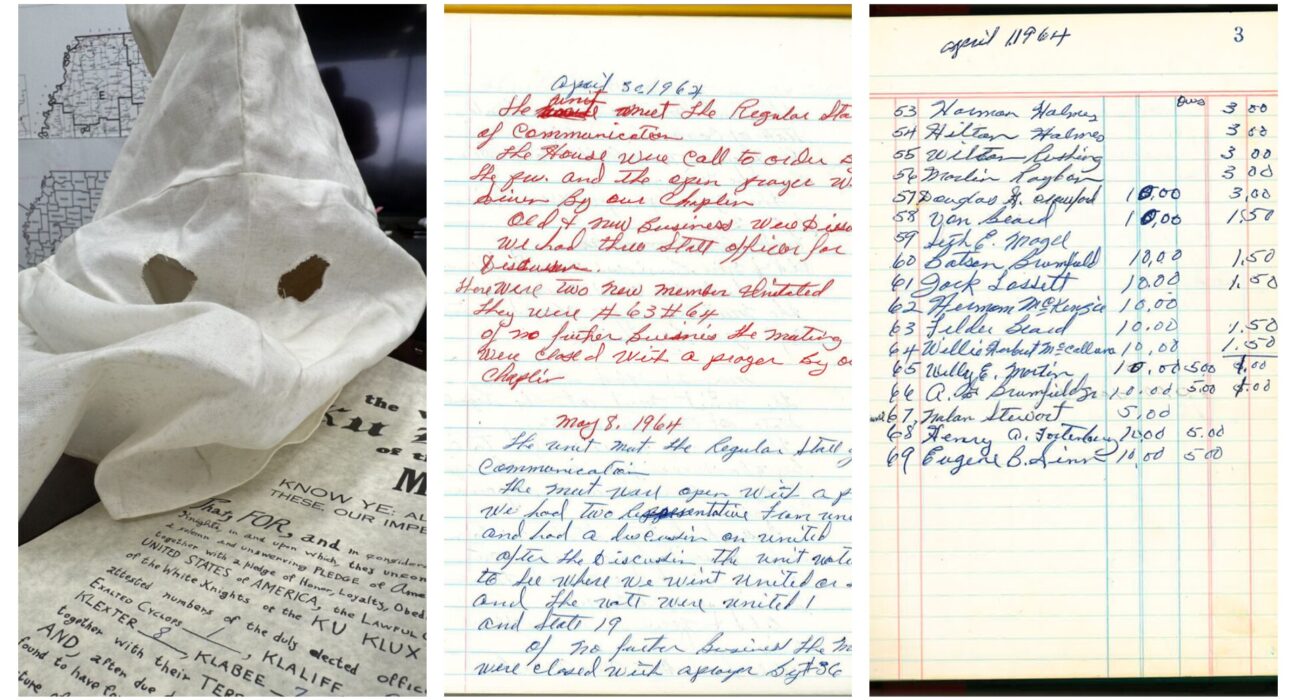 E
the
Ku
of the
M
KNOW YE: AL
THESE OUR IMPE
That's FOR, and in consider
insights, in and upon which, they uncon
together with a pledge of Honor, Loyalty, Obed
a solemn and unswerving PLEDGE of Ame
UNITED STATES of AMERICA, the LAWFUL C
of the White Knights of the KU KLUX
attested numbers of the duly elected
EXALTED CYCLOPS 1, KLALIFF
KLEXTER 8, KLABEE 7
together with their TERR
AND, after due
found to have fa
ture of
April 30 1964
The unit meet the Regular Sta
of Communication
The House were call to order
the and the open prayer w
Given by our Chaplin
Old & new Business were Discu
we had three Staff officer for
Discussion.
There were two new member
they were #63 #64
of no futher Business the meating
were closed with a prayer by o
Chaplin
May 8, 1964
The unit met the Regular Stall of
Communication
The meet ware open with a p
we had two Representative from une
and had a discussin on united
after the Discussin the unit vote
to see where we wint united or
and the vott were united 1
and State 19
of no futher Business the m
were closed with a prayer by #36
april 1, 1964 3
Dues
53 Norman Halmes 3 00
54 Hilton Halmes 3 00
55 Wilton Rushing 3 00
56 Marlin Rayborn 3 00
57 Douglas Crawford 10,00 3,00
58 Von Beard 10,00 1,50
59 Seth E. Magel
60 Batson Brumfield 10,00 1.50
61 Jack Lossett 10.00 1.50
62 Herman McKenzie 10,00
63 Felder Beard 10,00 1.50
64 Willie Herbert McCallann 10,00 1.50
65 Willy E. Martin 10,00 5.00 1.00
66 A. Brumfield Jr. 10.00 5.00 1.00
67 Nalan Stewart 5.00
68 Henry A. Fortenbury 10,00 5.00
69 Eugene B. Ginn 10,00 5.00